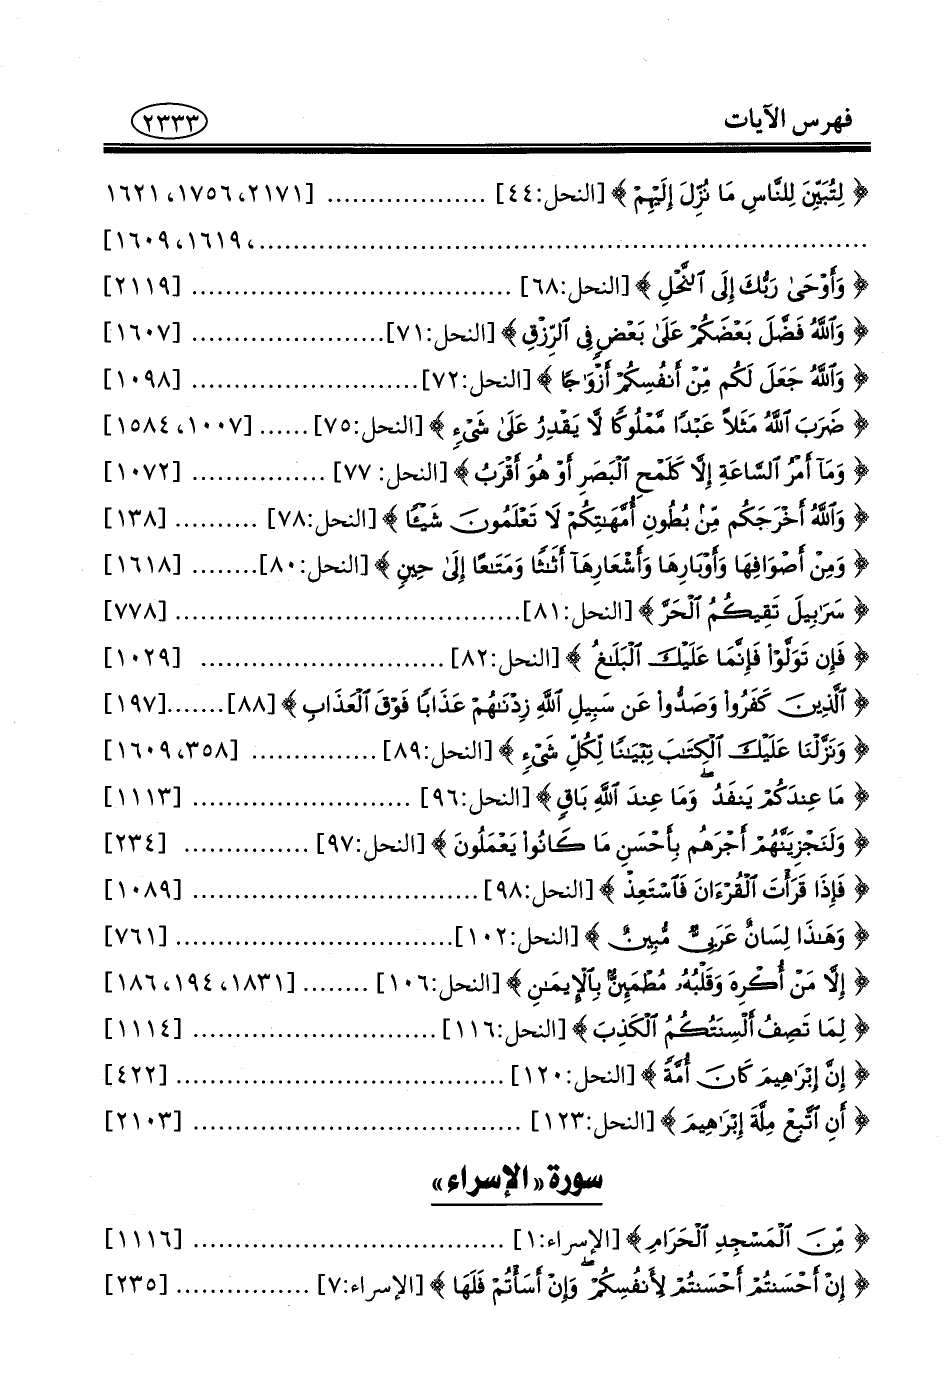 فهرس الآيات ٢٣٣٣
﴿ لِتُبَيِّنَ لِلنَّاسِ مَا نُزِّلَ إِلَيْهِمْ ﴾ [النحل:٤٤] ................... [٢١٧١، ١٧٥٦، ١٦٢١
......................................................................، ١٦١٩، ١٦٠٩]
﴿ وَأَوْحَىٰ رَبُّكَ إِلَى ٱلنَّحْلِ ﴾ [النحل:٦٨] ...................................... [٢١١٩]
﴿ وَٱللَّهُ فَضَّلَ بَعْضَكُمْ عَلَىٰ بَعْضٍ فِى ٱلرِّزْقِ ﴾ [النحل:٧١]....................... [١٦٠٧]
﴿ وَٱللَّهُ جَعَلَ لَكُم مِّنْ أَنفُسِكُمْ أَزْوَٰجًا ﴾ [النحل:٧٢]........................... [١٠٩٨]
﴿ ضَرَبَ ٱللَّهُ مَثَلاً عَبْدًا مَّمْلُوكًا لَّا يَقْدِرُ عَلَىٰ شَىْءٍ ﴾ [النحل:٧٥] ...... [١٠٠٧، ١٥٨٤]
﴿ وَمَآ أَمْرُ ٱلسَّاعَةِ إِلَّا كَلَمْحِ ٱلْبَصَرِ أَوْ هُوَ أَقْرَبُ ﴾ [النحل: ٧٧] ................ [١٠٧٢]
﴿ وَٱللَّهُ أَخْرَجَكُم مِّنۢ بُطُونِ أُمَّهَٰتِكُمْ لَا تَعْلَمُونَ شَيْـًٔا ﴾ [النحل:٧٨] .......... [١٣٨]
﴿ وَمِنْ أَصْوَافِهَا وَأَوْبَارِهَا وَأَشْعَارِهَآ أَثَٰثًا وَمَتَٰعًا إِلَىٰ حِينٍ ﴾ [النحل:٨٠]........ [١٦١٨]
﴿ سَرَٰبِيلَ تَقِيكُمُ ٱلْحَرَّ ﴾ [النحل:٨١]......................................... [٧٧٨]
﴿ فَإِن تَوَلَّوْا۟ فَإِنَّمَا عَلَيْكَ ٱلْبَلَٰغُ ﴾ [النحل:٨٢] ............................. [١٠٢٩]
﴿ ٱلَّذِينَ كَفَرُوا۟ وَصَدُّوا۟ عَن سَبِيلِ ٱللَّهِ زِدْنَٰهُمْ عَذَابًا فَوْقَ ٱلْعَذَابِ ﴾ [٨٨].......[١٩٧]
﴿ وَنَزَّلْنَا عَلَيْكَ ٱلْكِتَٰبَ تِبْيَٰنًا لِّكُلِّ شَىْءٍ ﴾ [النحل:٨٩] ............... [٣٥٨، ١٦٠٩]
﴿ مَا عِندَكُمْ يَنفَدُ ۖ وَمَا عِندَ ٱللَّهِ بَاقٍ ﴾ [النحل:٩٦] .......................... [١١١٣]
﴿ وَلَنَجْزِيَنَّهُمْ أَجْرَهُم بِأَحْسَنِ مَا كَانُوا۟ يَعْمَلُونَ ﴾ [النحل:٩٧] ............... [٢٣٤]
﴿ فَإِذَا قَرَأْتَ ٱلْقُرْءَانَ فَٱسْتَعِذْ ﴾ [النحل:٩٨] .................................. [١٠٨٩]
﴿ وَهَٰذَا لِسَانٌ عَرَبِىٌّ مُّبِينٌ ﴾ [النحل:١٠٢]................................. [٧٦١]
﴿ إِلَّا مَنْ أُكْرِهَ وَقَلْبُهُۥ مُطْمَئِنٌّۢ بِٱلْإِيمَٰنِ ﴾ [النحل:١٠٦] ........ [١٨٣١، ١٩٤، ١٨٦]
﴿ لِمَا تَصِفُ أَلْسِنَتُكُمُ ٱلْكَذِبَ ﴾ [النحل:١١٦] ............................. [١١١٤]
﴿ إِنَّ إِبْرَٰهِيمَ كَانَ أُمَّةً ﴾ [النحل:١٢٠] ....................................... [٤٢٢]
﴿ أَنِ ٱتَّبِعْ مِلَّةَ إِبْرَٰهِيمَ ﴾ [النحل:١٢٣] ....................................... [٢١٠٣]
سورة «الإسراء»
﴿ مِّنَ ٱلْمَسْجِدِ ٱلْحَرَامِ ﴾ [الإسراء:١] ..................................... [١١١٦]
﴿ إِنْ أَحْسَنتُمْ أَحْسَنتُمْ لِأَنفُسِكُمْ ۖ وَإِنْ أَسَأْتُمْ فَلَهَا ﴾ [الإسراء:٧] ................ [٢٣٥]